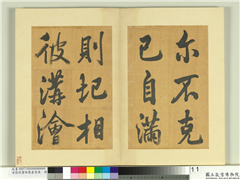 尓不克
已自滿
則圯相
彼溝澮
11
國立故宮博物院